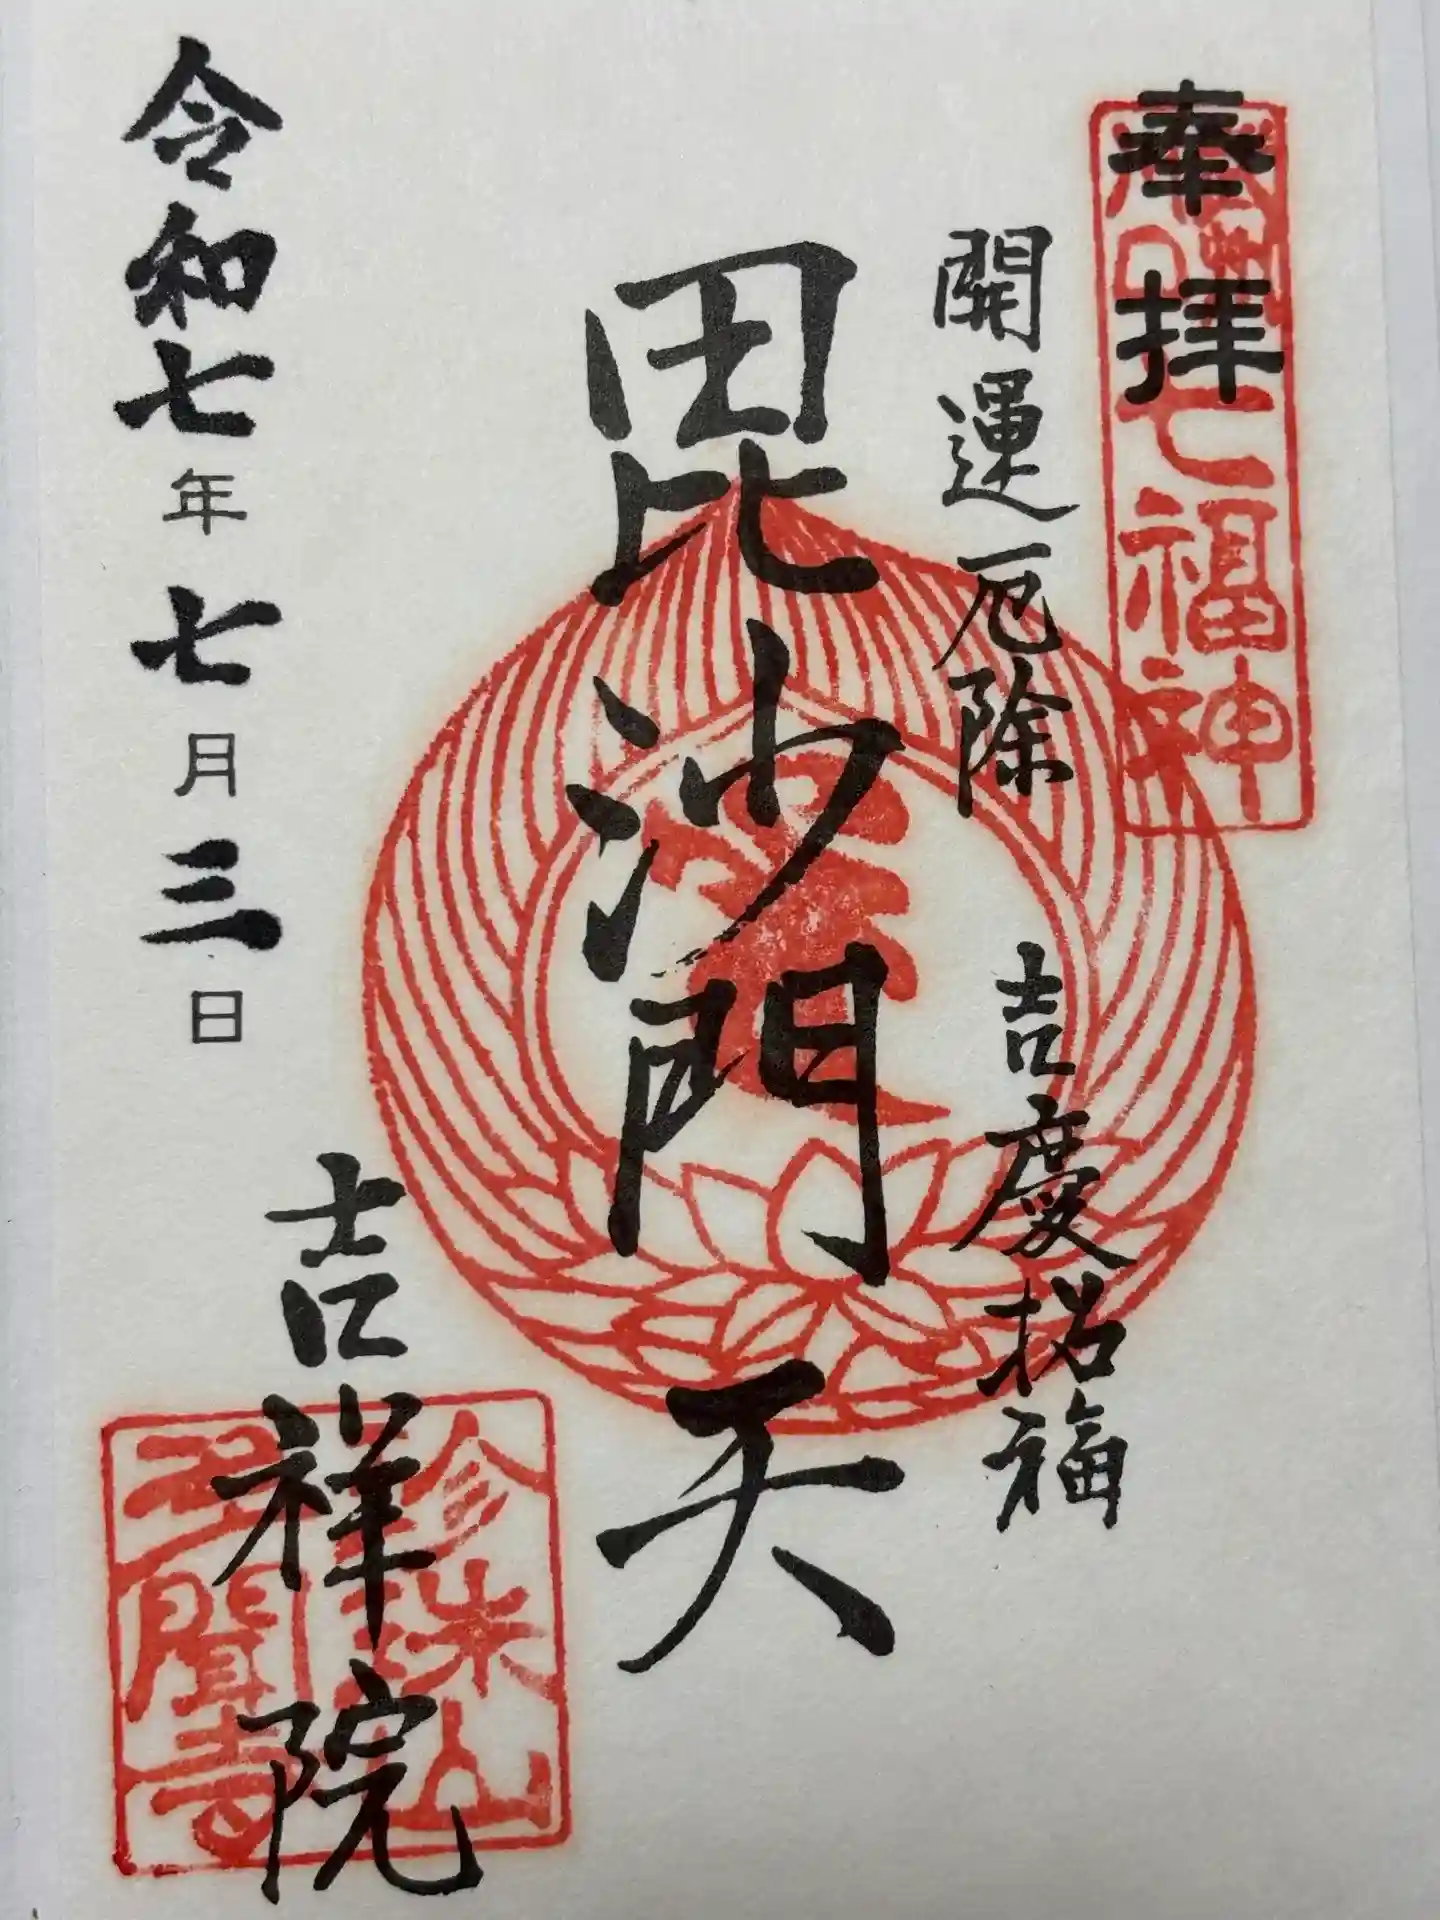 奉拝
七福神
開運厄除 吉慶招福
毘沙門天
令和七年七月三日
吉祥院
珍珠山
多聞寺